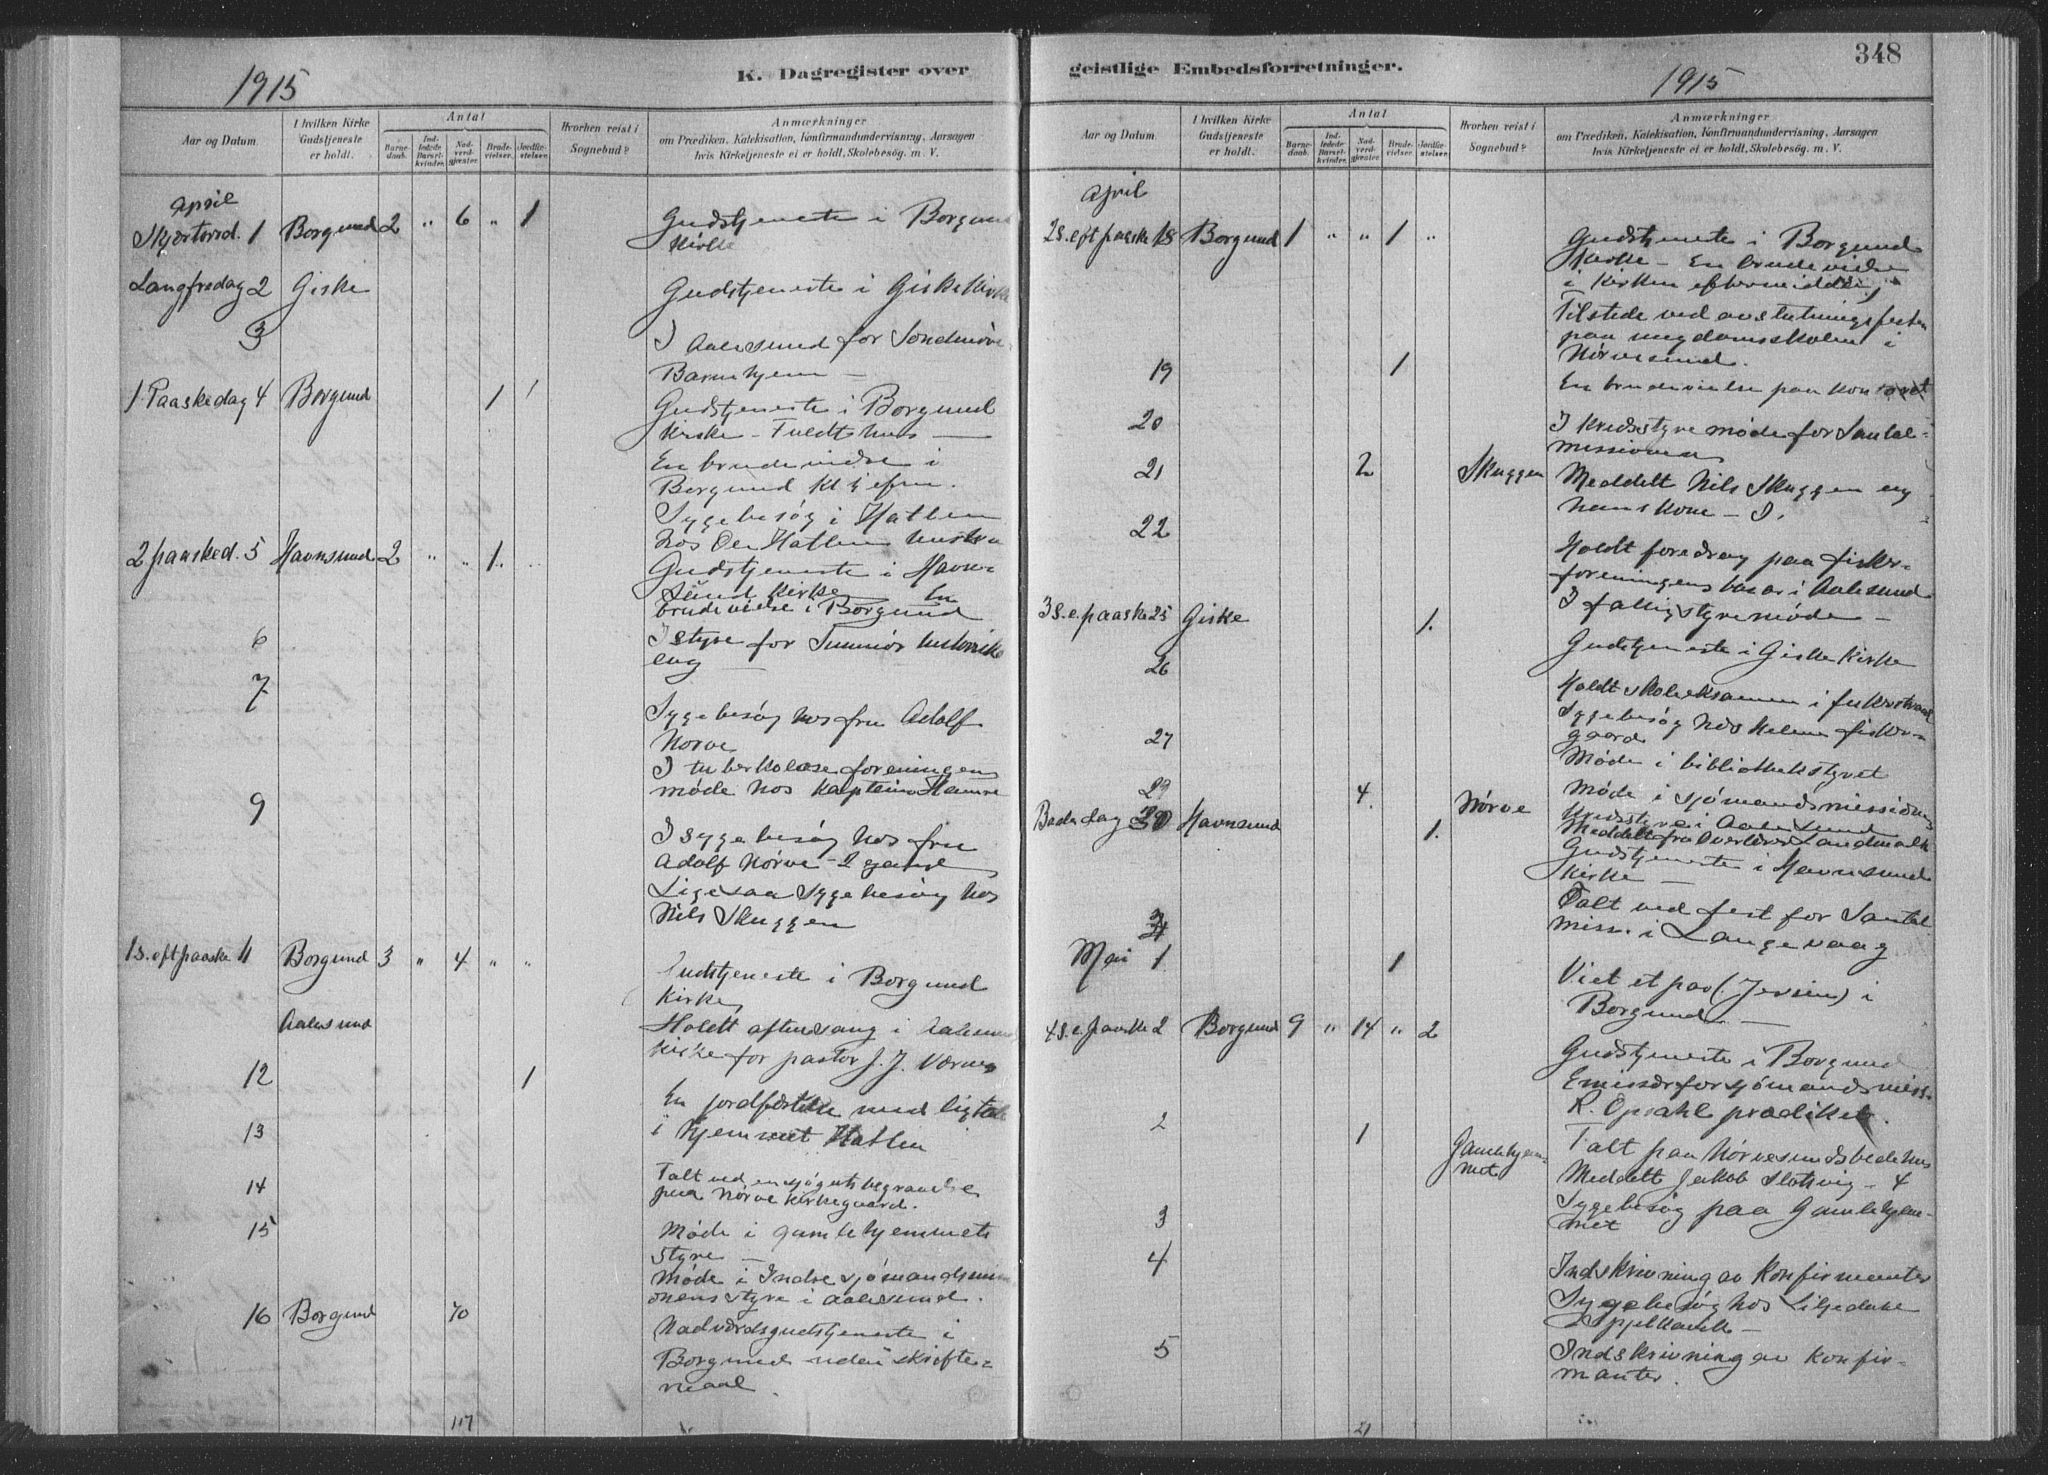 348
1915
K. Dagregister over
geistlige Embedsforretninger.
1915
Aar og Datum.
I hvilken Kirke
Gudstjeneste
er holdt.
Antal
Barnedaab.
Indledede Barselkvinder.
Nadverdgjester.
Brudevielser.
Jordfæstelser.
Hvorhen reist i
Sognebud?
Anmærkninger
om Prædiken, Katekisation, Konfirmandundervisning, Aarsagen
hvis Kirketjeneste ei er holdt, Skolebesög. m. V.
april
Skjærtorsd. 1 Borgund 2 " 6 " 1 Gudstjeneste i Borgund
Kirke
Langfredag 2 Giske Gudstjeneste i Giske Kirke
3 I Aalesund for Søndmøre
Barnehjem —
1 Paaskedag 4 Borgund 1 1 Gudstjeneste i Borgund
Kirke – Fuldt hus —
En brudevielse i
Borgund Kl efm.
Sygebesøg i Hatlen
hos Hatlens hustru
2 paasked. 5 Havnsund 2 " " 1 Gudstjeneste i Havn-
sund Kirke En
brudevielse i Borgund
6 I styre for Sunmør historiske
lag —
7 Sygebesøg hos fru Adolf
Nørve
I tuberkoloseforeningens
møde hos Kaptein Hamre
9 I sygebesøg hos fru
Adolf Nørve – 2 gange
Ligesaa Sygebesøg hos
Nils Skuggen
1 s. eft paaske 11 Borgund 3 " 4 " " Gudstjeneste i Borgund
Kirke
Aalesund Holdt aftensang i Aalesund
Kirke for pastor J. J. Værnes
12 1 En jordfæstelse med ligtale
i hjemmet Hatlen
13 Talt ved en begravelse
paa Nørve Kirkegaard.
14
15 Møde i gamlehjemmets
styre —
Møde i Indre sjømandsmissi
onens styre i Aalesund.
16 Borgund 70 Nadverdsgudstjeneste i
Borgund uden skrifte-
maal.
117
Aar og Datum.
I hvilken Kirke
Gudstjeneste
er holdt.
Antal
Barnedaab.
Indledede Barselkvinder.
Nadverdgjester.
Brudevielser.
Jordfæstelser.
Hvorhen reist i
Sognebud?
Anmærkninger
om Prædiken, Katekisation, Konfirmandundervisning, Aarsagen
hvis Kirketjeneste ei er holdt, Skolebesög. m. V.
april
2 s. eft paaske 18 Borgund 1 " " 1 " Gudstjeneste i Borgund
Kirke – En brudevielse
i Kirken eftermiddag
Tilstede ved avslutningsfesten
paa ungdomsskolen i
Nørvesund.
19 1 En brudevielse paa kontoret
20 I Kredsstyremøde for Santal-
missionen
21 2 Skuggen Meddelt Nils Skuggen og
hans Kone –
22 Holdt foredrag paa fisker-
foreningens basar i Aalesund
I fattigstyremøde —
3 s. e. paaske 25 Giske 1. Gudstjeneste i Giske Kirke
26 Holdt skoleeksamen i
Sygebesøg hos Helene Fisker-
gaard
27 Møde i bibliothekstyret
29 4 Nørve Møde i sjømandsmissions
kredsstyre i Aalesund
Meddelt fru Overlærer Landmark
Bededag 30 Havnsund 1. Gudstjeneste i Havnsund
Kirke —
Talt ved fest for Santal
miss. i Langevaag
Mai 1 1 Viet et par (Jensen) i
Borgund —
4 s. e. paaske 2 Borgund 9 " 14 " 2 Gudstjeneste i Borgund
Emissær for sjømandsmiss.
R. Opsahl prædiket.
2 1 Gamlehjem-
met
Talt paa Nørvesunds bedehus
Meddelt Jakob Slotsvig –
3 Sygebesøg paa Gamlehjem-
met
4 Indskrivning av Konfirmanter
Sygebesøg hos Liljedahl
Spjelkavik —
5 Indskrivning av Konfir-
manter.
21